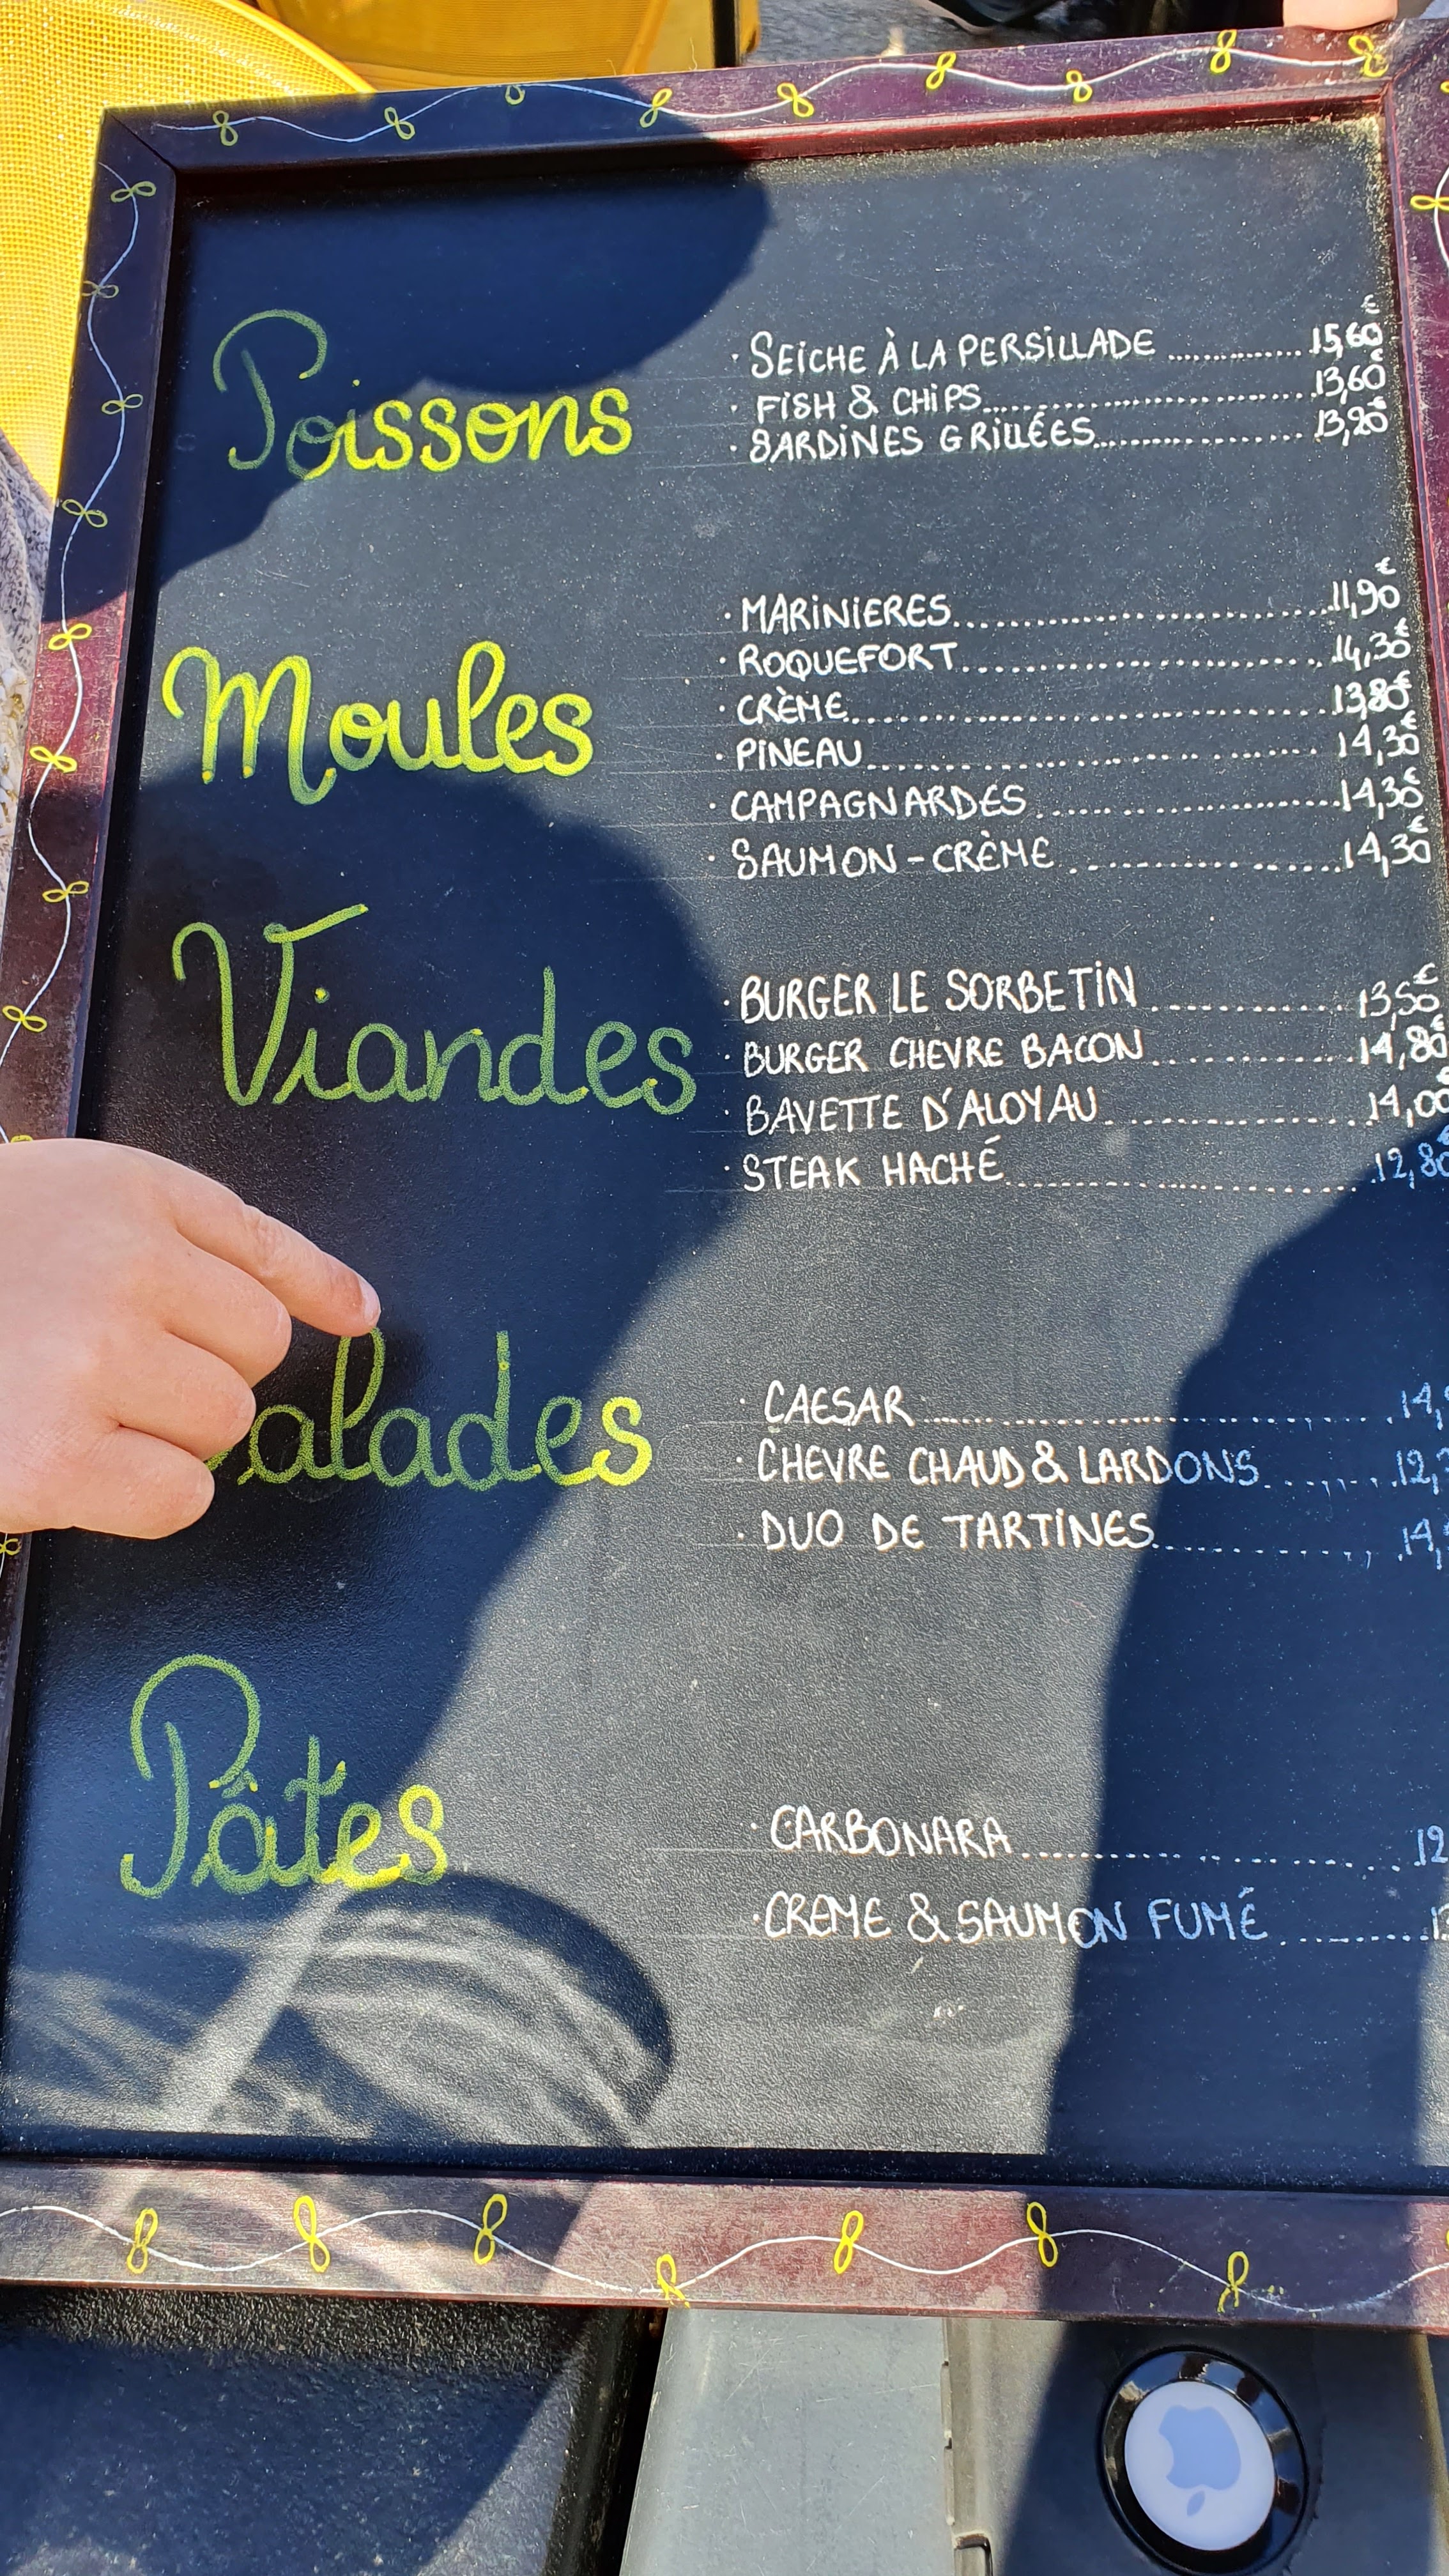 Poissons
· SEICHE À LA PERSILLADE ............... 15,60€
· FISH & CHIPS............................... 13,60€
· SARDINES GRILLÉES..................... 13,20€
Moules
· MARINIERES............................... 11,90€
· ROQUEFORT............................... 14,30€
· CRÈME....................................... 13,80€
· PINEAU....................................... 14,30€
· CAMPAGNARDES ........................ 14,30€
· SAUMON-CRÈME ....................... 14,30€
Viandes
· BURGER LE SORBETIN ................ 13,50€
· BURGER CHEVRE BACON ............. 14,80€
· BAVETTE D'ALOYAU .................... 14,00€
· STEAK HACHÉ ............................ 12,80€
alades
CAESAR ....................................... 14,
· CHEVRE CHAUD & LARDONS ......... 12,
· DUO DE TARTINES ...................... 14,
Pâtes
· CARBONARA ............................... 12
· CREME & SAUMON FUMÉ ............